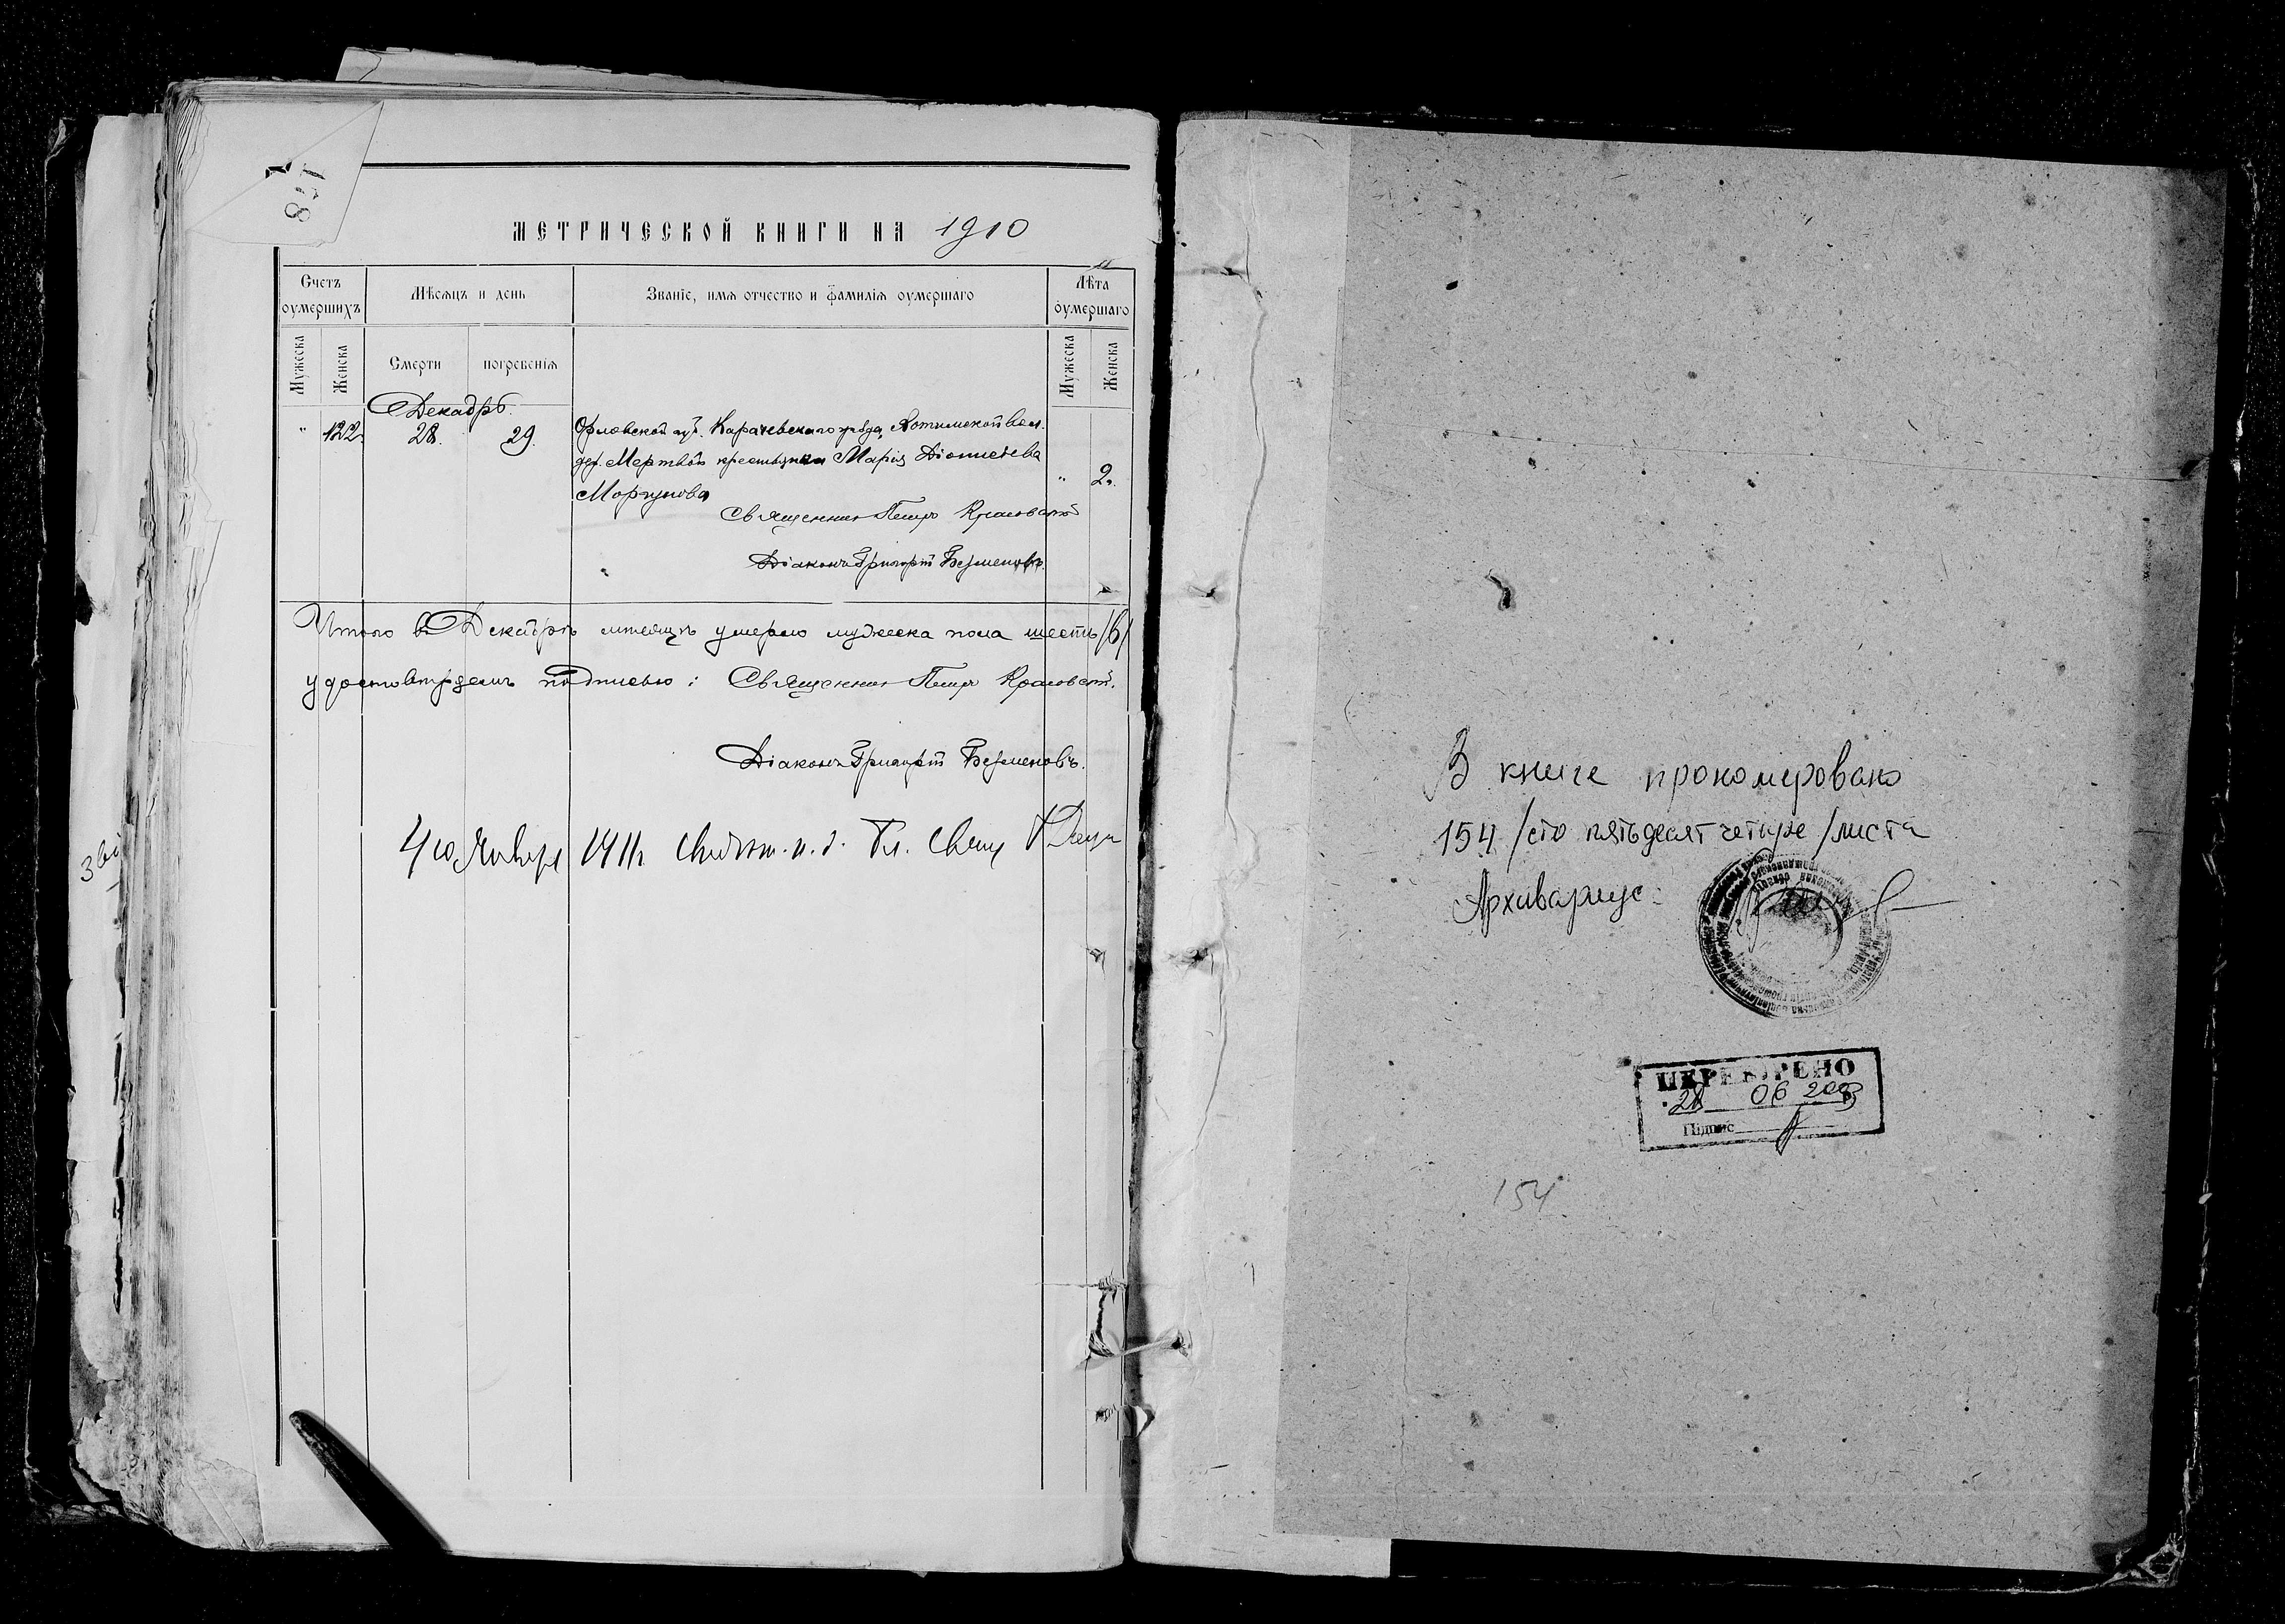 МЕТРИЧЕСКОЙ КНИГИ НА 1910
Счетъ оумершихъ
Мѣсяцъ и день
Званіе, имя отчество и фамилія оумершаго
Лѣта оумершаго
Мужеска
Женска
Смерти
погребенія
Мужеска
Женска
Декабрь.
" 122. 28. 29. Орловской губ. Карачевскаго уѣзда, Хотимской вол.
дер. Мертвой крестьянка Марія Діонисіева " 2.
Моргунова
Священникъ Петръ
Діаконъ Григорій Безменовъ.
Итого въ Декабрѣ мѣсяцѣ умерло мужеска пола шесть /6/
удостовѣряемъ подписью: Священникъ Петръ
Діаконъ Григорій Безменовъ.
Января 1911 г.
В книге прономеровано
154 /сто пятьдесят четыре/ листа
Архивариус:
ПЕРЕВІРЕНО
28 06 2003
Підпис
154